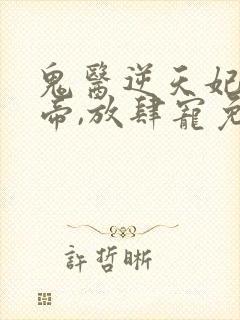 鬼醫逆天妃
帝,放肆寵免
許哲晰